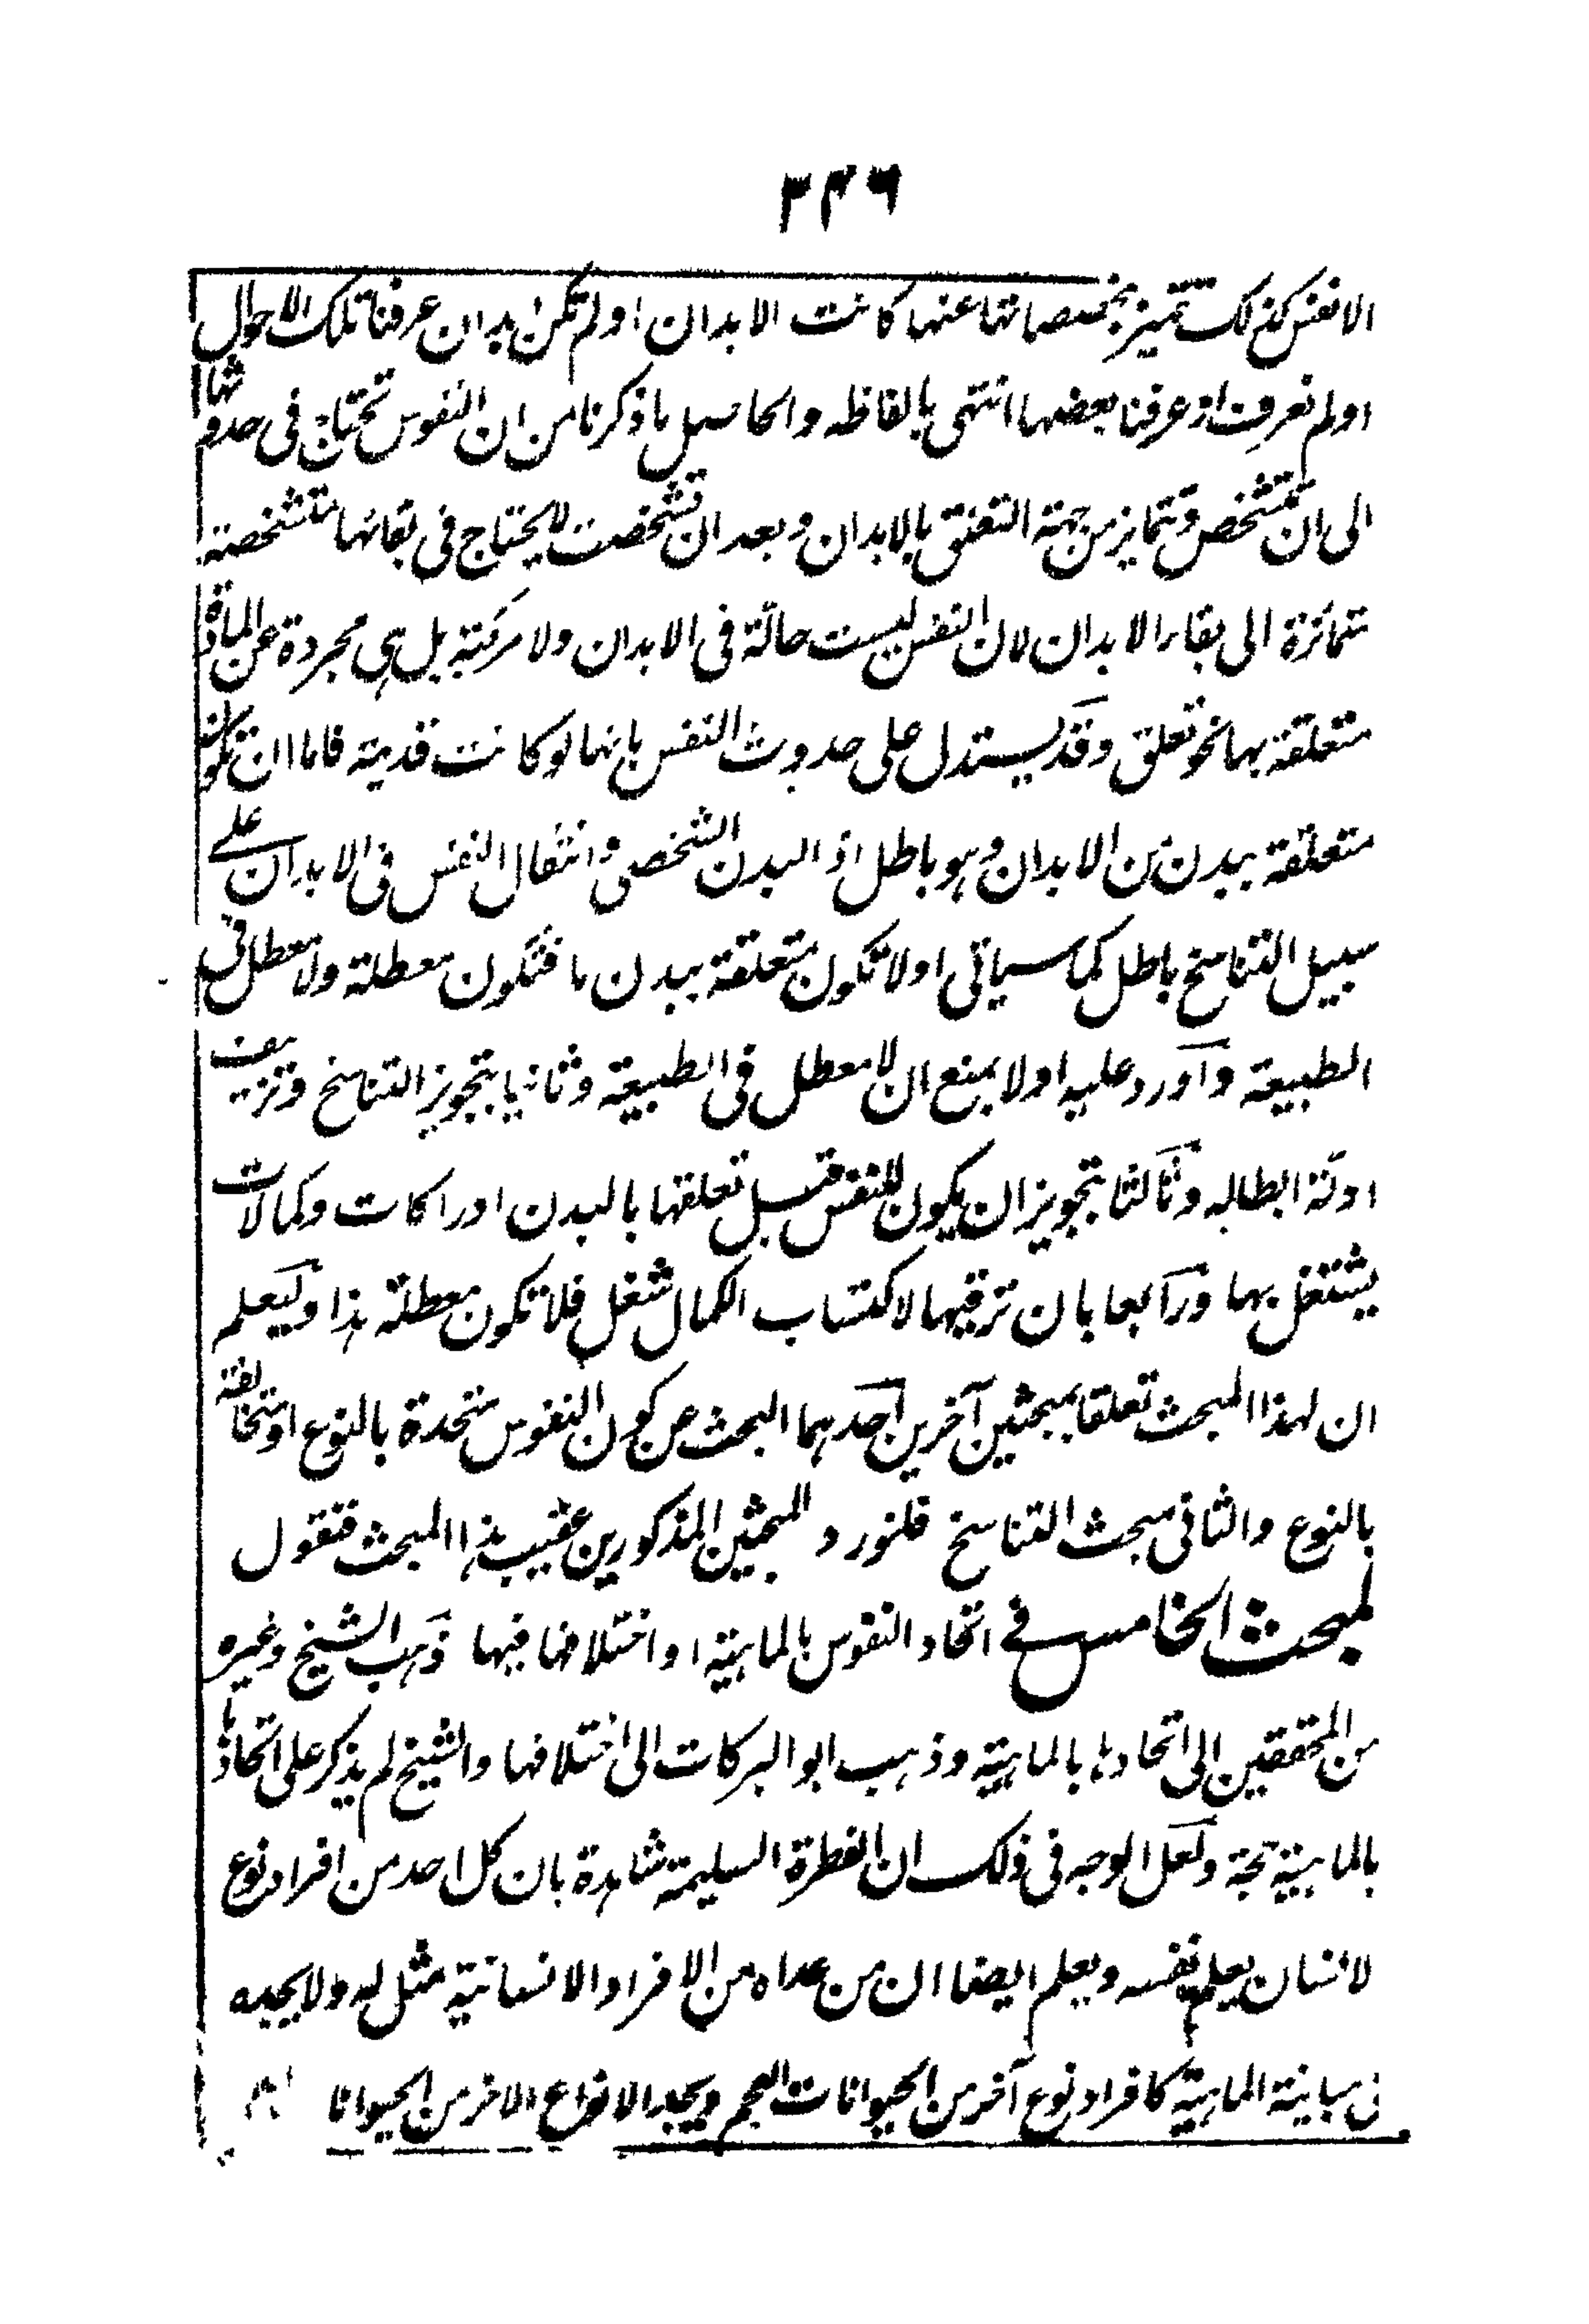 ٣٤٦
الانفس كذلك تتميز بمخصصاتها عنها كانت الابدان اولم تكن ابدان عرفنا تلك الاحوال
اولم نعرف او عرفنا بعضها انتهى بالفاظه والحاصل ما ذكرنا من ان النفوس تحتاج فى حدوثها
الى ان تتشخص وتتمايز من جهة التعلق بالابدان وبعد ان تشخصت لا يحتاج فى بقائها متشخصة
متمائزة الى بقاء الابدان لان النفس ليست حالّة فى الابدان ولا مركبة بل هى مجردة عن المادة
متعلقة بها نحو تعلق وقد يستدل على حدوث النفس بانها لو كانت قديمة فاما ان تكون
متعلقة ببدن من الابدان وهو باطل اذ البدن الشخصى وانتقال النفس فى الابدان على
سبيل التناسخ باطل كما سياتى اولا تكون متعلقة ببدن ما فتكون معطلة ولا معطل فى
الطبيعة وآورد عليه اولا بمنع ان لا معطل فى الطبيعة وثانيا بتجويز التناسخ وتزييف
ادلة ابطاله وثالثا بتجويز ان يكون للنفس قبل تعلقها بالبدن ادراكات وكمالات
يشتغل بها ورابعا بان ترقيها لاكتساب الكمال شغل فلا تكون معطلة هذا وليعلم
ان لهذا المبحث تعلقا بمبحثين آخرين احدهما البحث عن كون النفوس متحدة بالنوع او متخالفة
بالنوع والثانى مبحث التناسخ فلنورد المبحثين المذكورين عقيب هذا المبحث فنقول
لمبحث الخامس فى اتحاد النفوس بالماهية او اختلافها فيها ذهب الشيخ وغيره
من المحققين الى اتحادها بالماهية وذهب ابو البركات الى اختلافها والشيخ لم يذكر على اتحادها
بالماهية حجة ولعل الوجه فى ذلك ان الفطرة السليمة شاهدة بان كل احد من افراد نوع
لانسان يعلم نفسه ويعلم ايضا ان من عداه من الافراد الانسانية مثل له ولا يجده
فى مباينة الماهية كافراد نوع آخر من الحيوانات العجم ويجد الانواع الاخر من الحيوانا